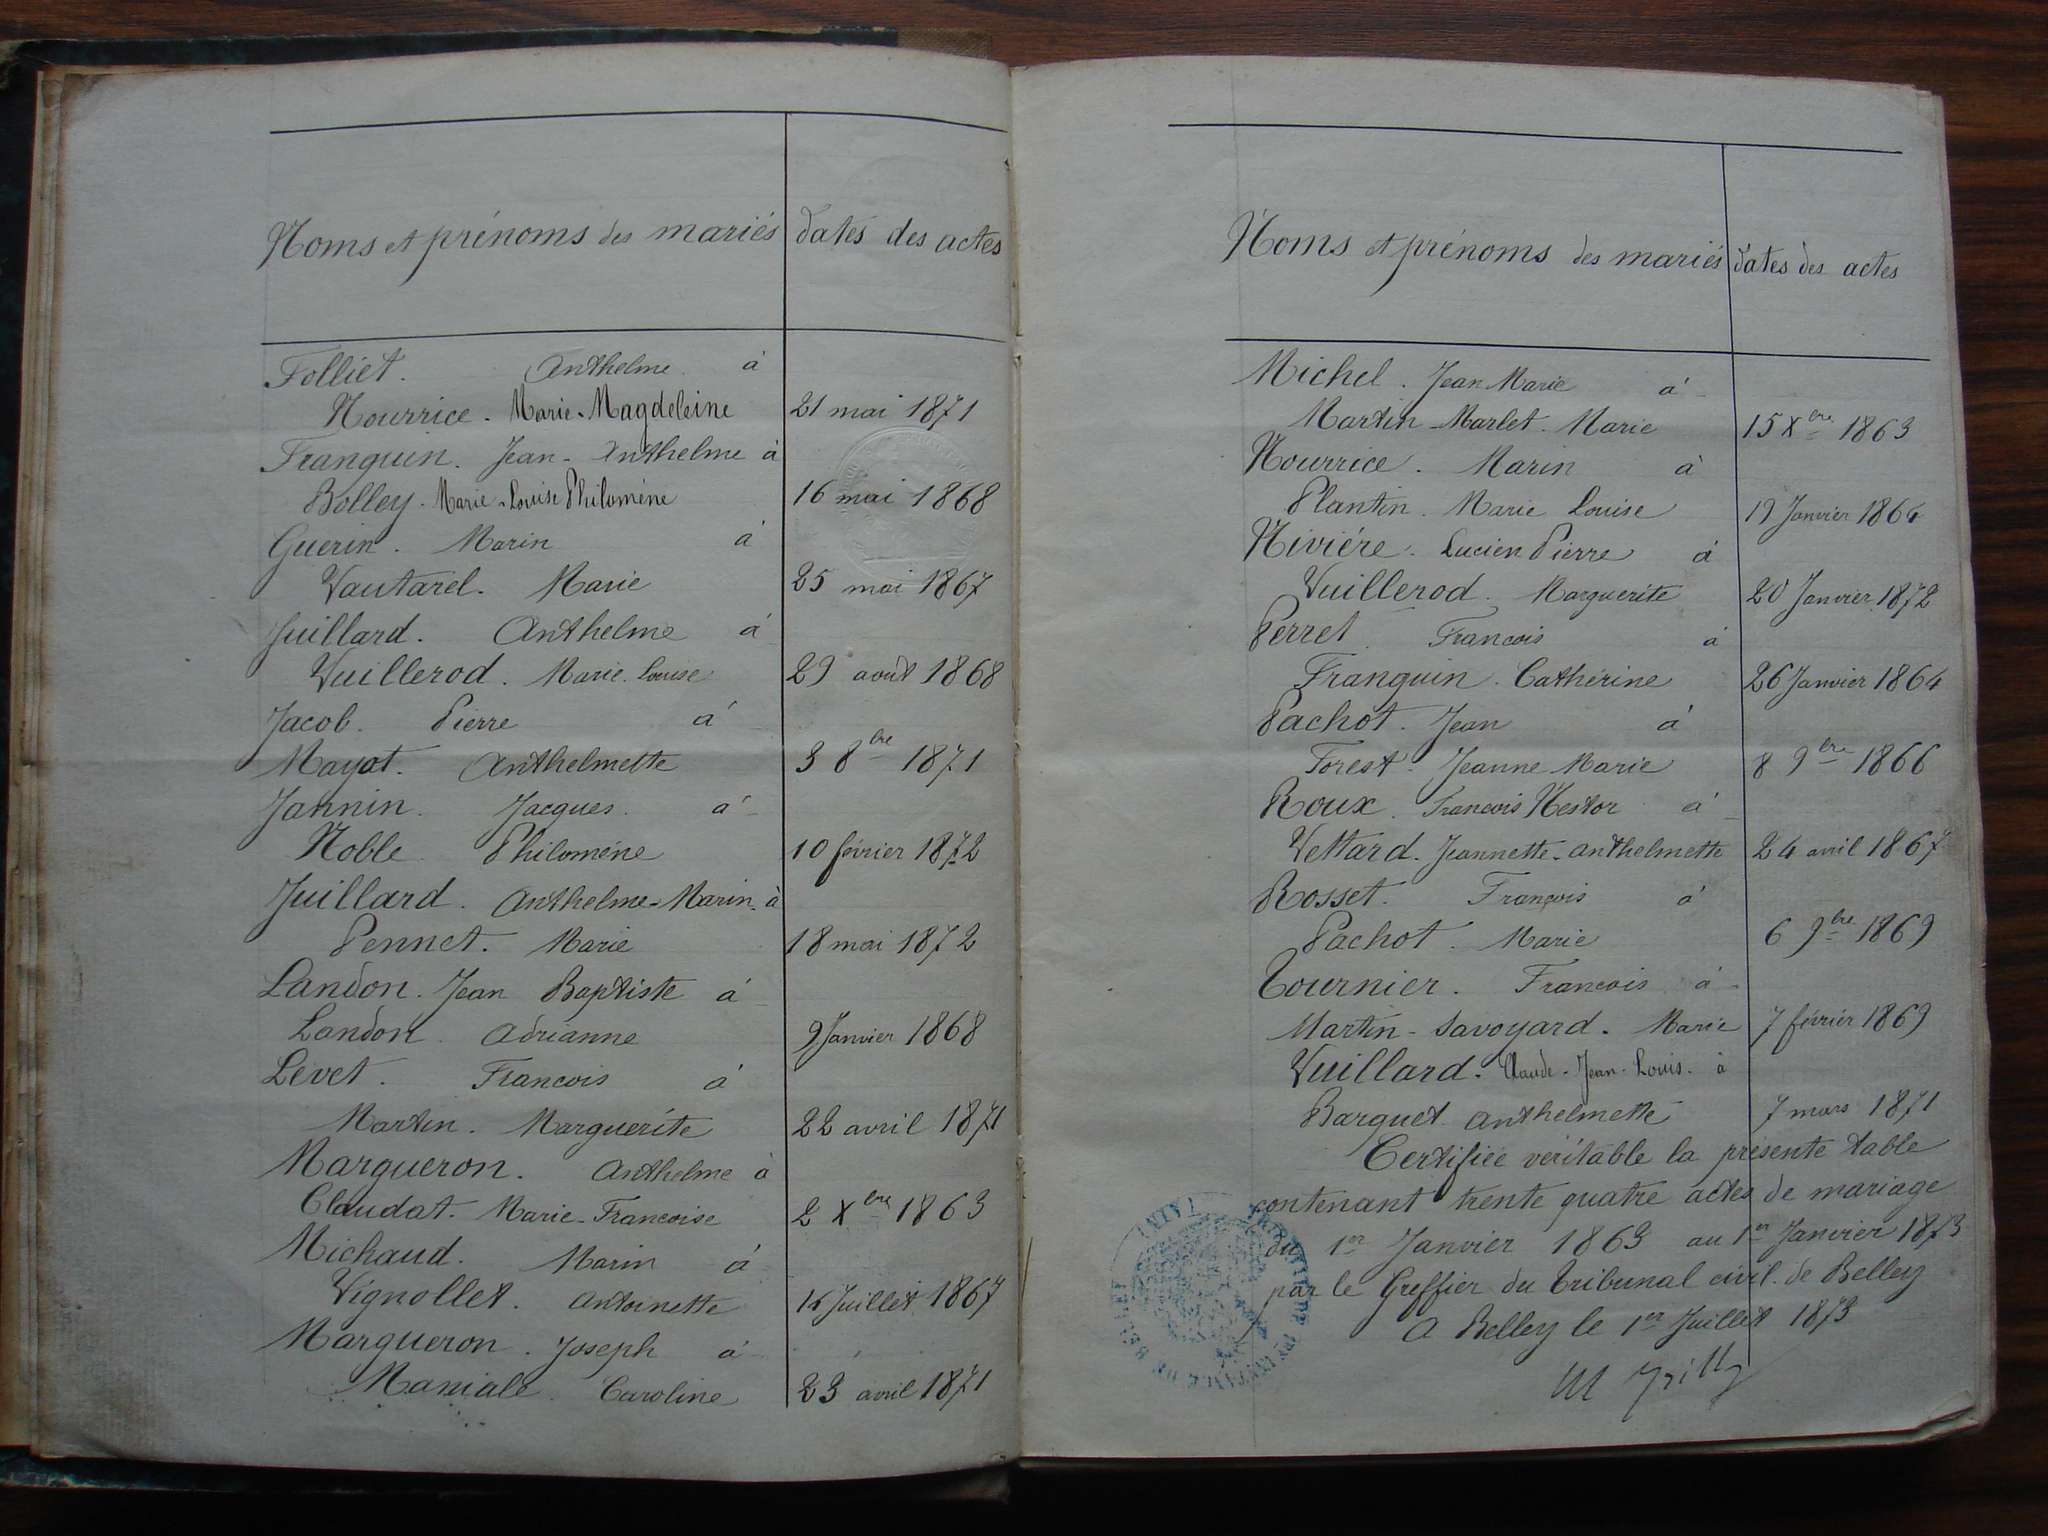 Noms et prénoms des mariés dates des actes
Folliet. Anthelme à
Nourrice. Marie-Magdeleine 21 mai 1871
Franquin. Jean-Anthelme à
Bolley. Marie-Louise Philomène 16 mai 1868
Guerin. Marin à
Vautarel. Marie 25 mai 1867
Juillard. Anthelme à
Vuillerod. Marie Louise 29 août 1868
Jacob. Pierre à
Mayot. Anthelmette 3 8bre 1871
Jannin. Jacques. à
Noble Philomène 10 février 1872
Juillard. Anthelme-Marin. à
Pennet. Marie 18 mai 1872
Landon. Jean Baptiste à
Landon. Adrianne 9 Janvier 1868
Levet. Francois à
Martin. Marguerite 22 avril 1871
Margueron. Anthelme à
Claudat. Marie-Francoise 2 Xbre 1863
Michaud. Marin à
Vignollet. Antoinette Juillet 1867
Margueron. Joseph à
Caroline 23 avril 1871
Noms et prénoms des mariés dates des actes
Michel. Jean Marie à
Martin-Marlet. Marie 15 Xbre 1863
Nourrice. Marin à
Plantin. Marie Louise 19 Janvier 1864
Nivière. Lucien Pierre à
Vuillerod. Marguerite 20 Janvier 1872
Perret Francois à
Franquin. Cathérine 26 Janvier 1864
Pachot. Jean à
Forest. Jeanne Marie 8 9bre 1866
Roux. Francois Nestor à
Vettard. Jeannette-Anthelmette 24 avril 1867
Rosset. François à
Pachot. Marie 6 9bre 1869
Tournier. Francois à
Martin-Savoyard. Marie 7 février 1869
Vuillard. Claude-Jean-Louis. à
Barquet Anthelmette 7 mars 1871
Certifiée véritable la présente table
contenant trente quatre actes de mariage
du 1er Janvier 1863 au 1er Janvier 1873
par le Greffier du Tribunal civil de Belley
A Belley le 1er Juillet 1873